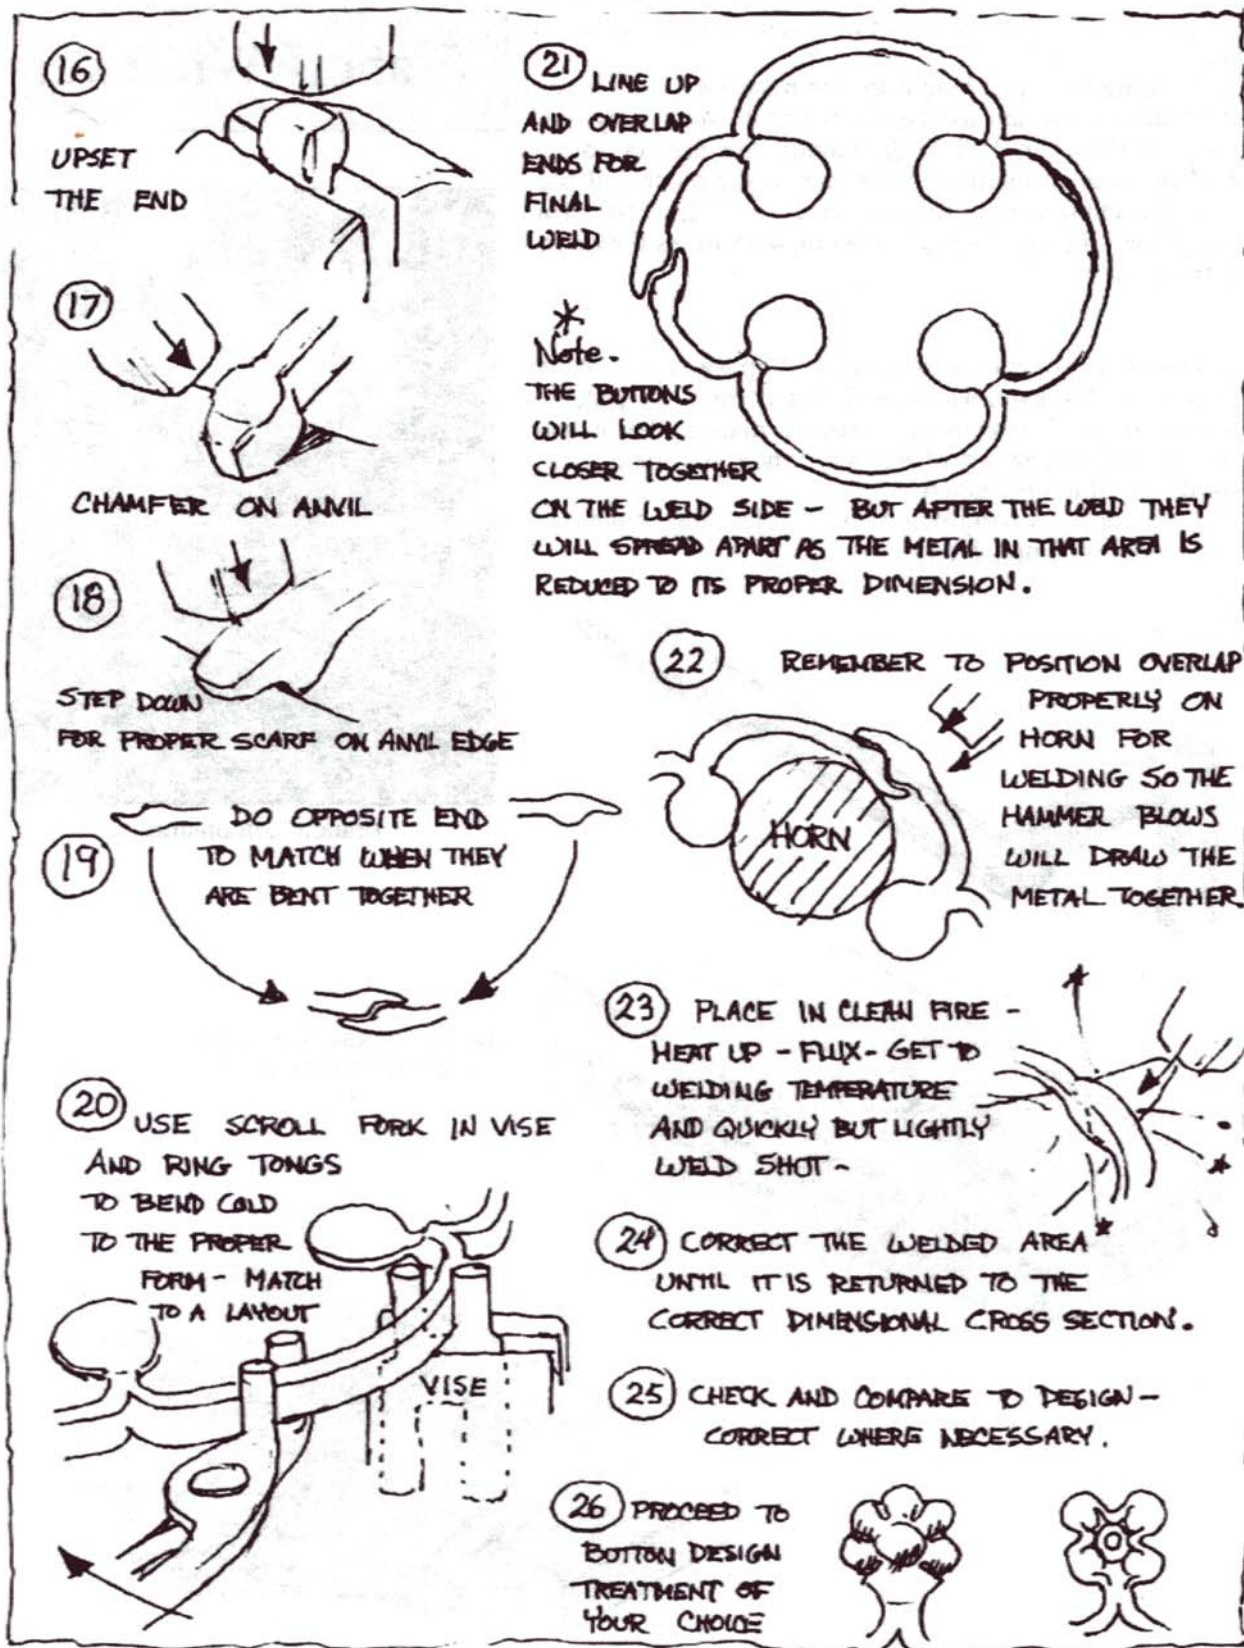 16
UPSET
THE END
17
CHAMFER ON ANVIL
18
STEP DOWN
FOR PROPER SCARF ON ANVIL EDGE
19
DO OPPOSITE END
TO MATCH WHEN THEY
ARE BENT TOGETHER
20 USE SCROLL FORK IN VISE
AND RING TONGS
TO BEND COLD
TO THE PROPER
FORM - MATCH
TO A LAYOUT
VISE
21 LINE UP
AND OVERLAP
ENDS FOR
FINAL
WELD
*
Note.
THE BUTTONS
WILL LOOK
CLOSER TOGETHER
ON THE WELD SIDE - BUT AFTER THE WELD THEY
WILL SPREAD APART AS THE METAL IN THAT AREA IS
REDUCED TO ITS PROPER DIMENSION.
22 REMEMBER TO POSITION OVERLAP
PROPERLY ON
HORN FOR
WELDING SO THE
HAMMER BLOWS
WILL DRAW THE
METAL TOGETHER.
HORN
23 PLACE IN CLEAN FIRE -
HEAT UP - FLUX - GET TO
WELDING TEMPERATURE
AND QUICKLY BUT LIGHTLY
WELD SHUT -
24 CORRECT THE WELDED AREA
UNTIL IT IS RETURNED TO THE
CORRECT DIMENSIONAL CROSS SECTION.
25 CHECK AND COMPARE TO DESIGN -
CORRECT WHERE NECESSARY.
26 PROCEED TO
BOTTON DESIGN
TREATMENT OF
YOUR CHOICE